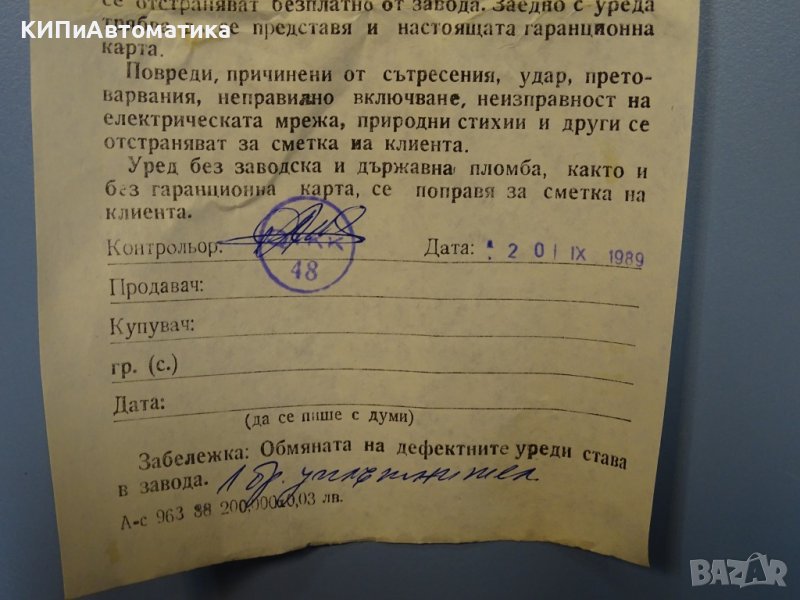 се отстраняват безплатно от завода. Заедно с уреда
КИПиАвтоматика
трябва да се представя и настоящата гаранционна
карта.
Повреди, причинени от сътресения, удар, прето-
варвания, неправилно включване, неизправност на
електрическата мрежа, природни стихии и други се
отстраняват за сметка на клиента.
Уред без заводска и държавна пломба, както и
без гаранционна карта, се поправя за сметка на
клиента.
Контрольор:
48
Дата: 20 IX 1989
Продавач:
Купувач:
гр. (с.)
Дата:
(да се пише с думи)
Забележка: Обмяната на дефектните уреди става
в завода. 1 бр. уплътнител
А-с 963 88 200,000х0,03 лв.
BAZAR